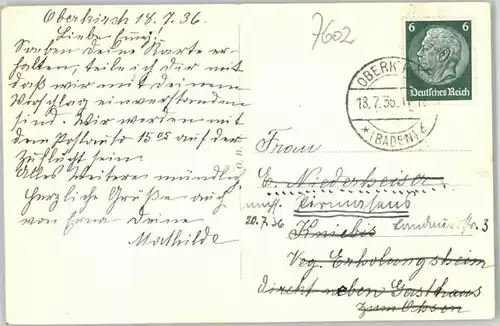 Oberkirch 18.7.36.
Liebe Emmy!
Haben deine Karte er-
halten, teile ich dir mit
daß wir mit deinem
Vorschlag einverstanden
sind. Wir werden mit
dem Postauto 15 05 auf der
Zuflucht sein.
Alles Weitere mündlich,
herzliche Grüße auch
von Erna Deine
Mathilde
7602
6 6
Deutsches Reich
OBERKIRCH
18.7.36
* (BADEN)
Frau
E. Niederheiser
nach Pirmasens
20.7.36 Kniebis Landauerstr. 3
Veg. Erholungsheim
direkt neben Gasthaus
zum Ochsen